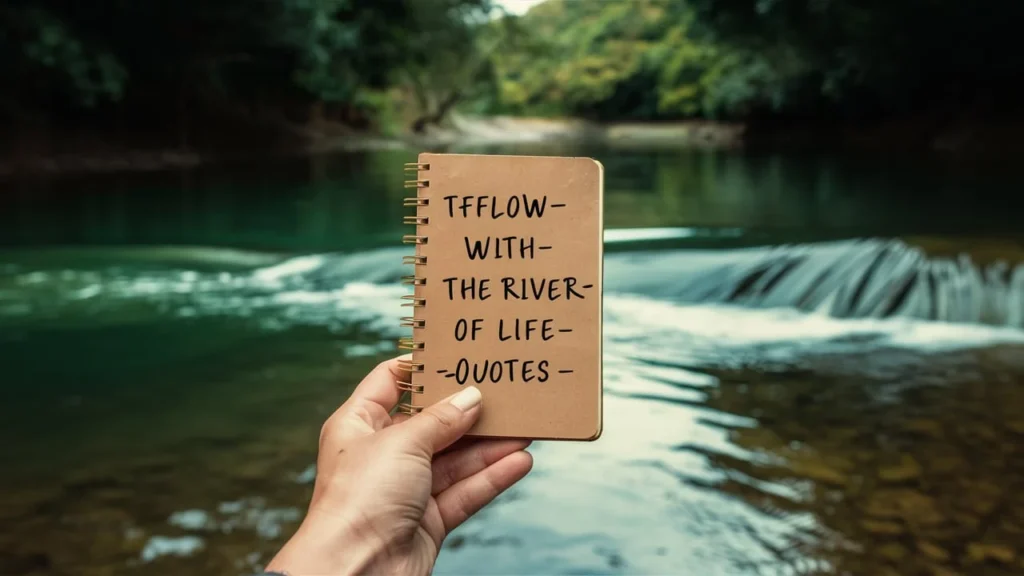 TFFLOW–
WITH–
THE RIVER-
OF LIFE–
-–QUOTES –